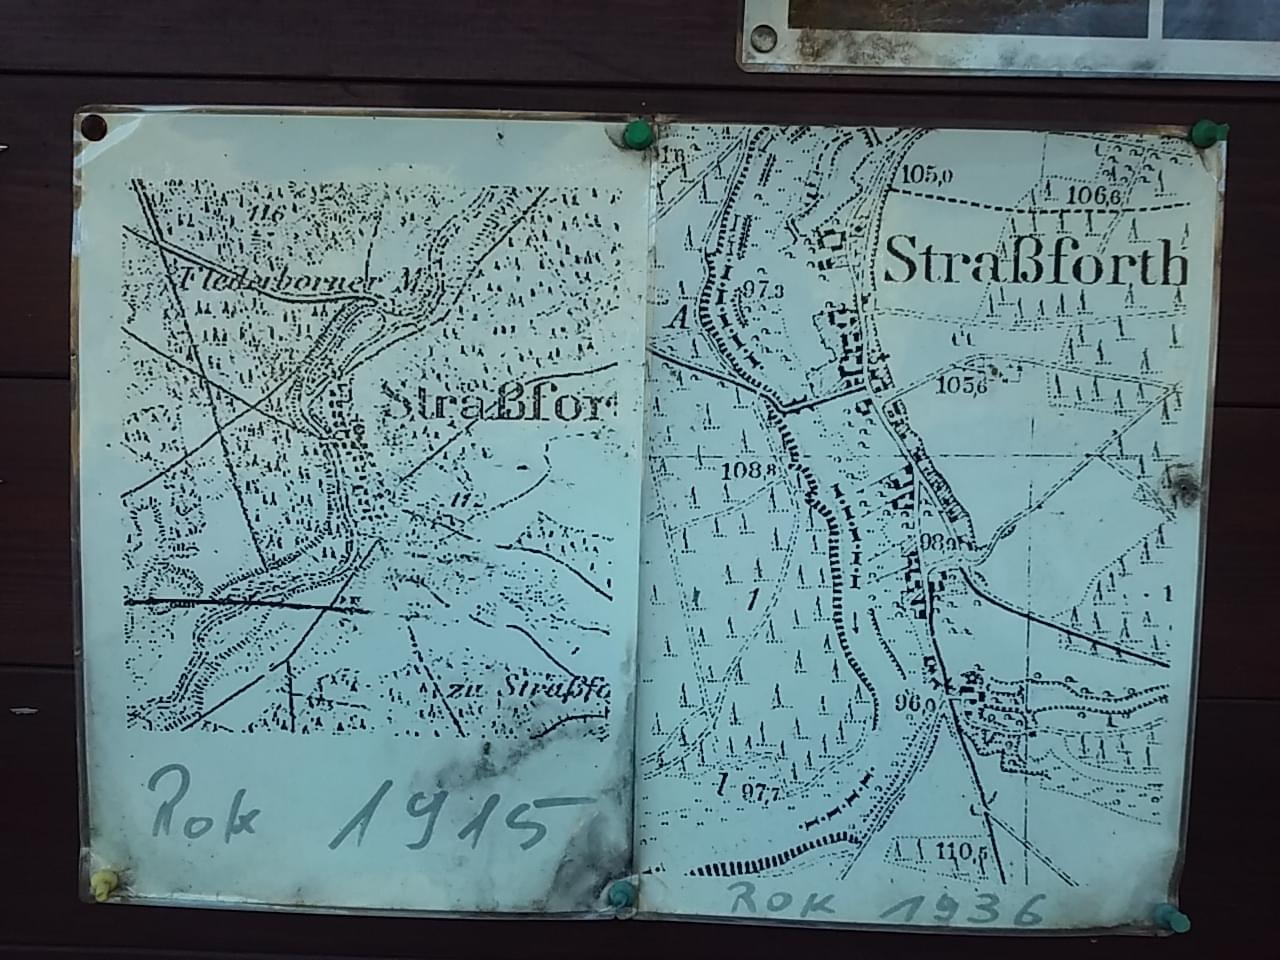 116
Flederborner M.
Straßfor
zu Straßfo
Rok 1915
105,0
106,6
Straßforth
97,3
A
105,6
108,8
98,9
1
96,0
l 97,7
110,5
Rok 1936